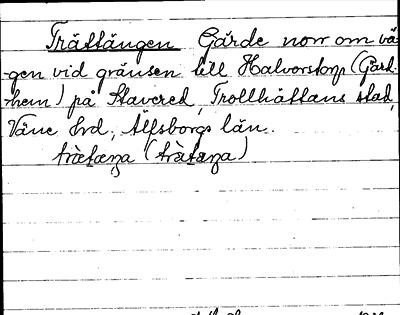 Trättängen Gärde norr om vä-
gen vid gränsen till Halvorstorp (Gärd-
hem) på Stavered, Trollhättans stad,
Väne hrd, Älfsborgs län.